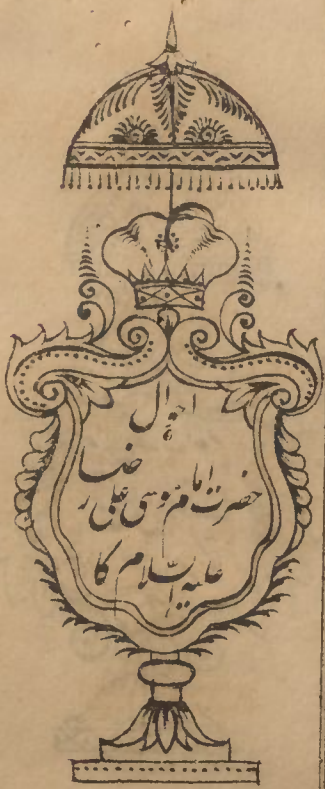 احوال
حضرت امام موسی علی رضا
علیہ السلام کا